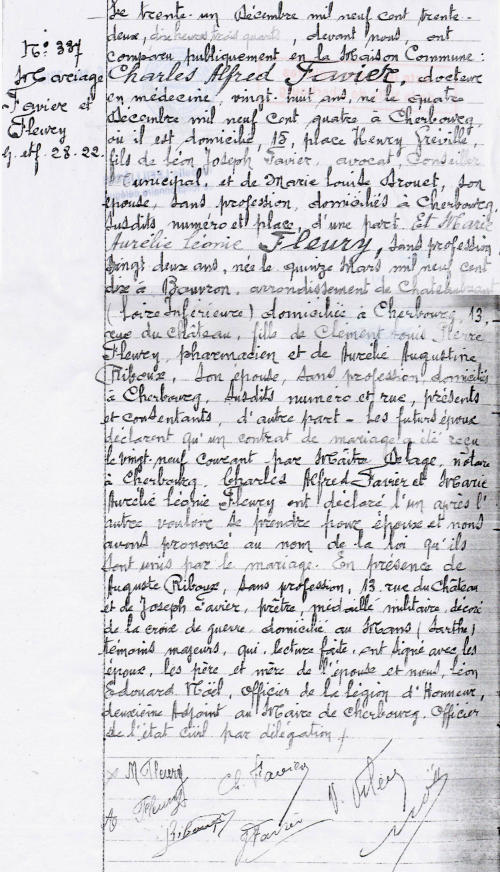 N° 387
Mariage
Favier et
Fleury
Le trente-un Décembre mil neuf cent trente-
deux, dix heures trois quarts, devant nous, ont
comparu publiquement en la Maison Commune :
Charles Alfred Favier, docteur
en médecine, vingt-huit ans, né le quatre
Décembre mil neuf cent quatre à Cherbourg,
où il est domicilié, 15, place Henry Gréville,
fils de Léon Joseph Favier, avocat, Conseiller
Municipal, et de Marie Louise Drouet, son
épouse, sans profession, domiciliés à Cherbourg,
susdits numéro et place, d'une part. Et Marie
Aurélie Léonie Fleury, sans profession
vingt-deux ans, née le quinze Mars mil neuf cent
dix à Bouvron, arrondissement de Chateaubriant
(Loire Inférieure) domiciliée à Cherbourg, 13,
rue du Château, fille de Clément Louis Pierre
Fleury, pharmacien et de Aurélie Augustine
Riboux, son épouse, sans profession, domiciliés
à Cherbourg, susdits numéro et rue, présents
et consentants, d'autre part - Les futurs époux
déclarent qu'un contrat de mariage a été reçu
le vingt-neuf courant par Maître Delage, notaire
à Cherbourg. Charles Alfred Favier et Marie
Aurélie Léonie Fleury ont déclaré l'un après l'
autre vouloir se prendre pour époux et nous
avons prononcé au nom de la loi qu'ils
sont unis par le mariage. En présence de
Auguste Riboux, sans profession, 13 rue du Château
et de Joseph Favier, prêtre, médaille militaire, décoré
de la croix de guerre, domicilié au Mans (Sarthe)
témoins majeurs, qui, lecture faite, ont signé avec les
époux, les père et mère de l'épouse et nous, Léon
Edouard Noël, Officier de la Légion d'Honneur,
deuxième Adjoint au Maire de Cherbourg, Officier
de l'état civil par délégation
M Fleury
Ch. Favier
Fleury
A Riboux
J Favier
Noël